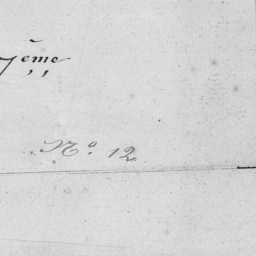 7ème
Nº 12